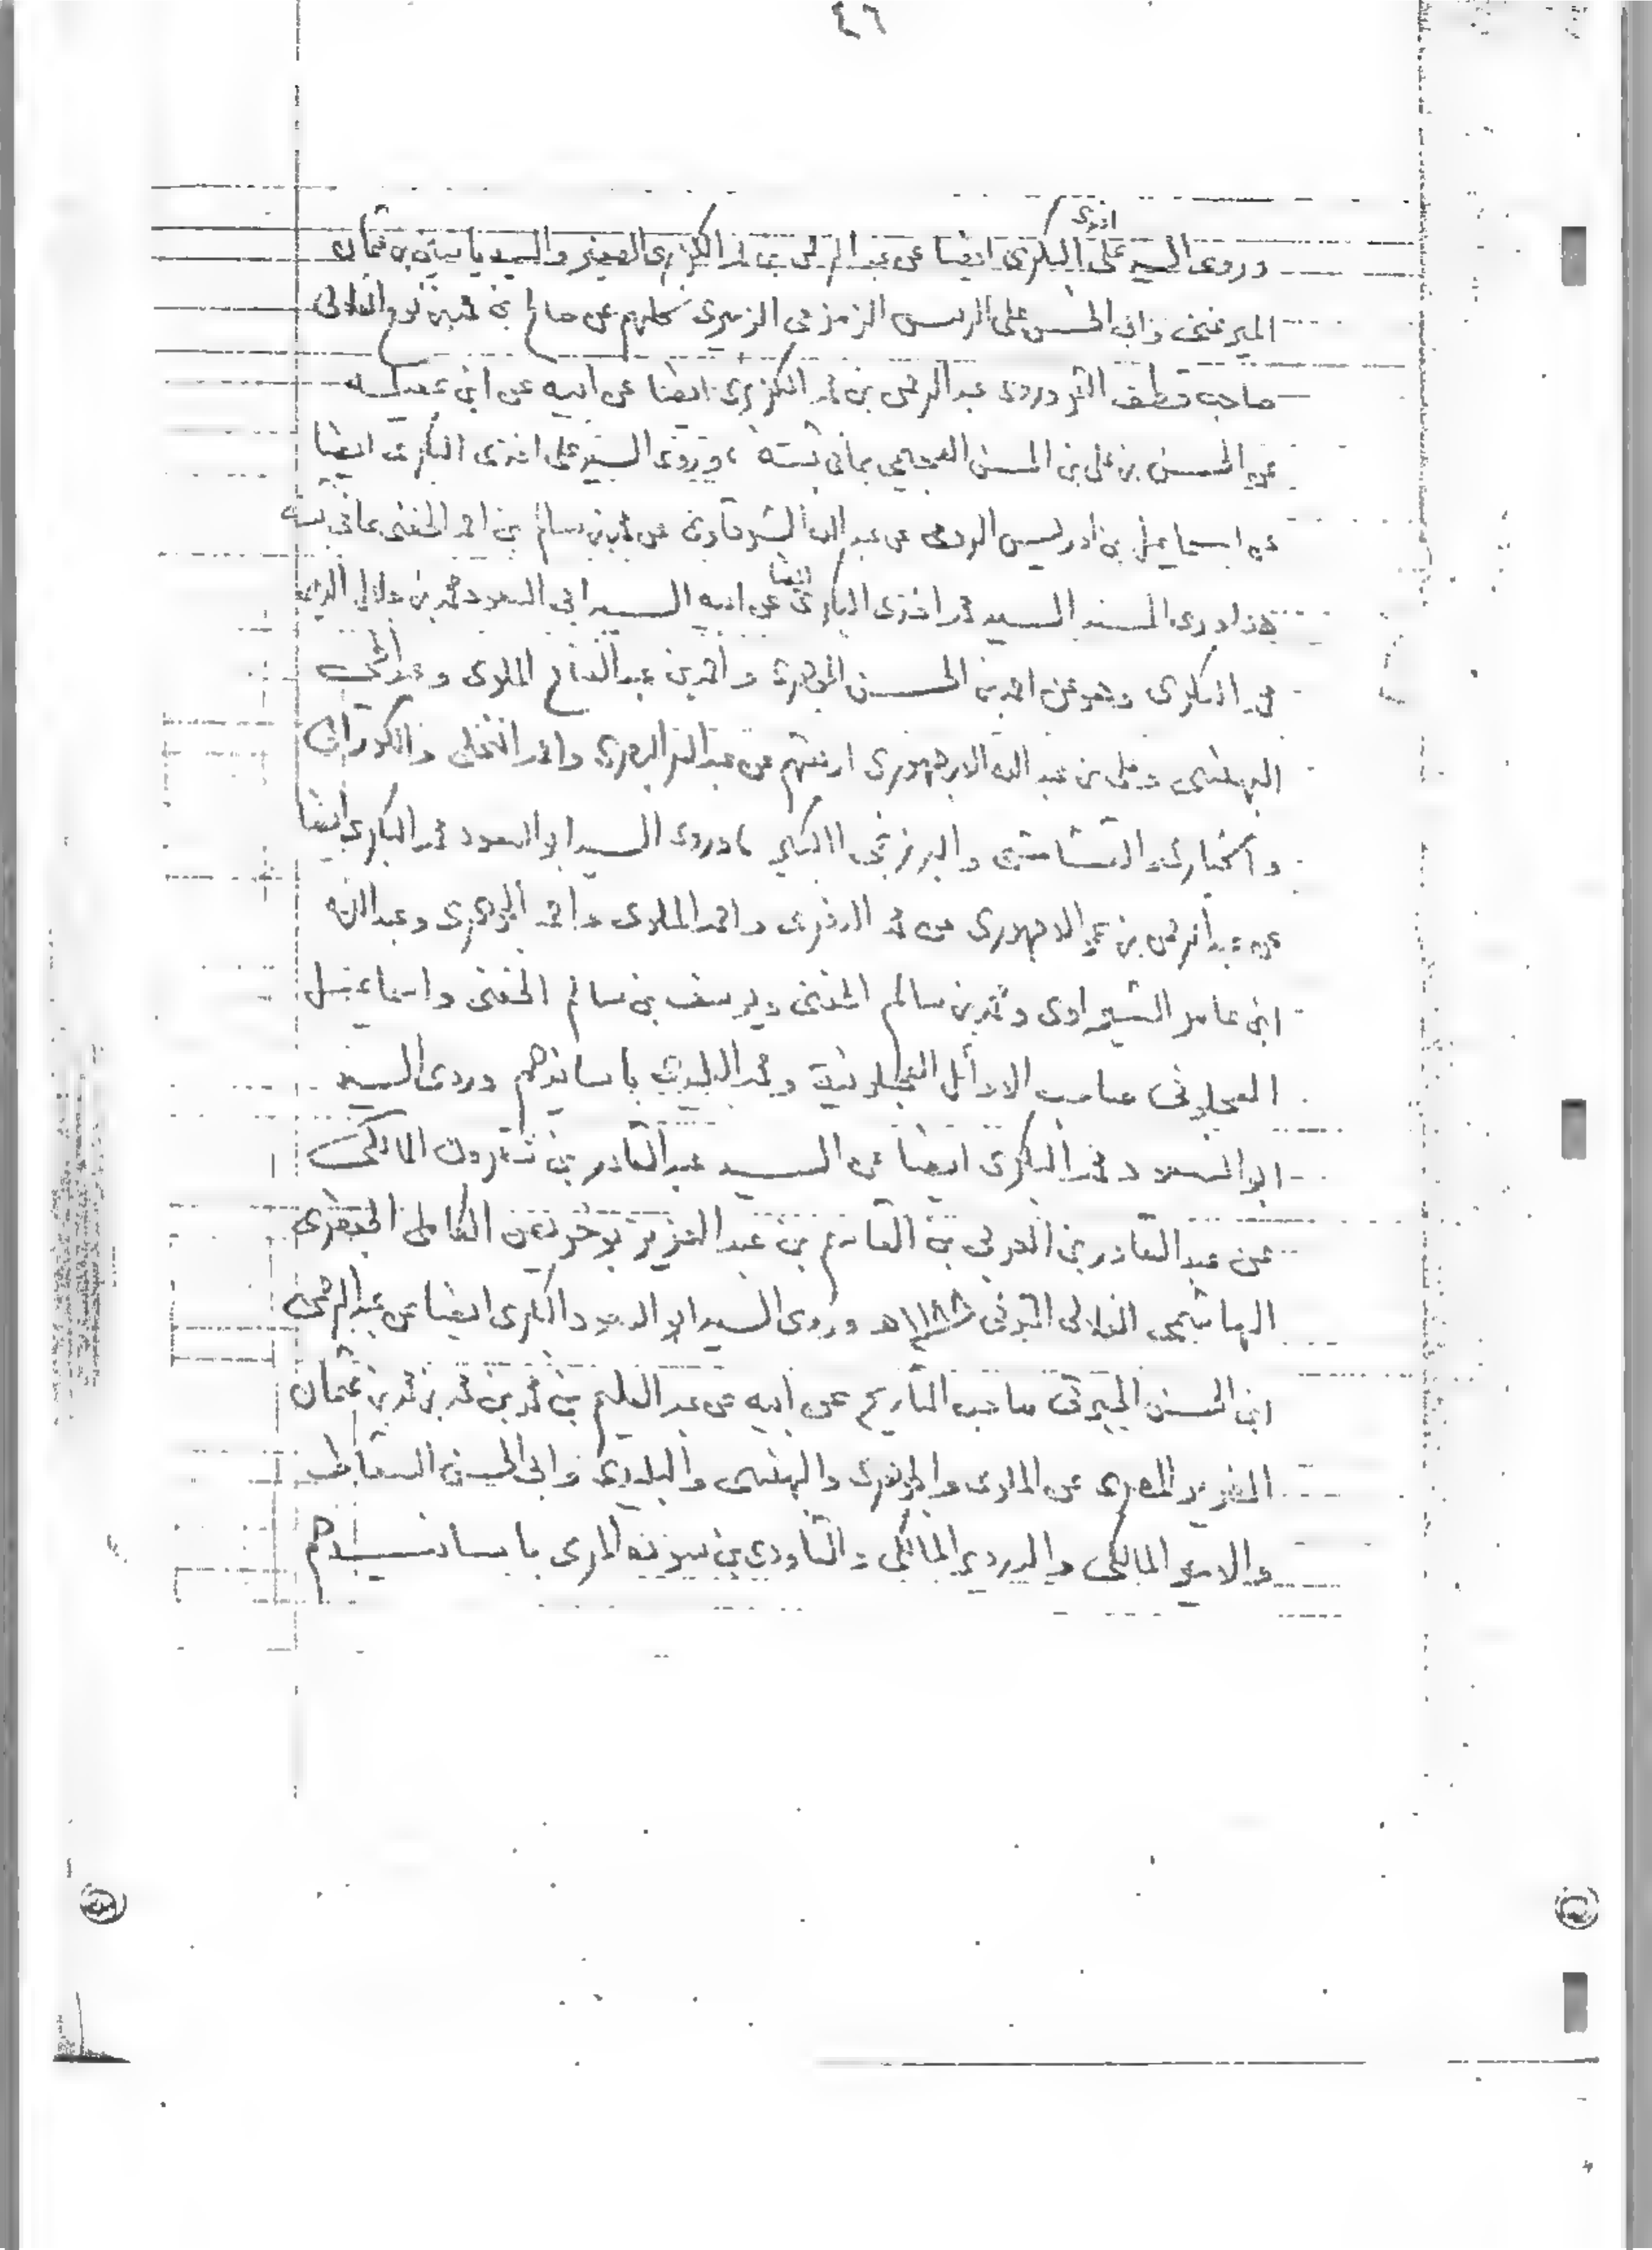 ٤٦
افندى
وروى السيد على البكرى ايضا عن عبد الرحمن بن محمد الكزبرى الصغير والسيد ياسين بن عثمان
الميرغنى وابى الحسن على الريس الزمزمى الزبيرى كلهم عن صالح بن محمد بن نوح الفلانى
صاحب قطف الثمر وروى عبد الرحمن بن محمد الكزبرى ايضا عن ابيه عن ابن عقيلة
عن الحسن بن على بن الحسن العجيمى بمافى ثبته ، وروى السيد على افندى البكرى ايضا
عن اسماعيل بن ادريس الرومى عن عبد الله الشرقاوى عن محمد بن سالم بن احمد الحفنى بمافى ثبته
ايضا
هذا وروى المسند السيد محمد افندى البكرى عن ابيه السيد ابى السعود محمد بن جلال الدين
محمد البكرى وهو عن احمد بن الحسن الجوهرى واحمد بن عبد الفتاح الملوى وعبد الحى
البهنسى وعلى بن عبد الله الاجهورى اربعتهم عن عبد الله البصرى واحمد النخلى والكورانى
والشاشى والبرزنجى الكبير ، وروى السيد ابو السعود محمد البكرى ايضا
عن عبد الرحمن بن عمر الاجهورى عن محمد الدفرى واحمد الملوى واحمد الجوهرى وعبد الله
ابن عامر الشبراوى ومحمد بن سالم الحفنى ويوسف بن سالم الحفنى واسماعيل
العجلونى صاحب الاوائل العجلونية ومحمد البليدى باسانيدهم وروى السيد
ابو السعود محمد البكرى ايضا عن السيد عبد القادر بن شقرون المالكى
عن عبد القادر بن العربى بن القاسم بن عبد العزيز بوخريص الكاملى الجعفرى
الهاشمى الفلالى المتوفى ١١٨٨هـ وروى السيد ابو السعود البكرى ايضا عن عبد الرحمن
ابن الحسن الجبرتى صاحب التاريخ عن ابيه عن عبد العليم بن محمد بن محمد بن محمد بن عثمان
الضرير المصرى عن الملوى والجوهرى والبهنسى والبليدى وابى الحسن السقاط
والامير المالكى والدردير المالكى والتاودى بن سودة المرى باسانيدهم